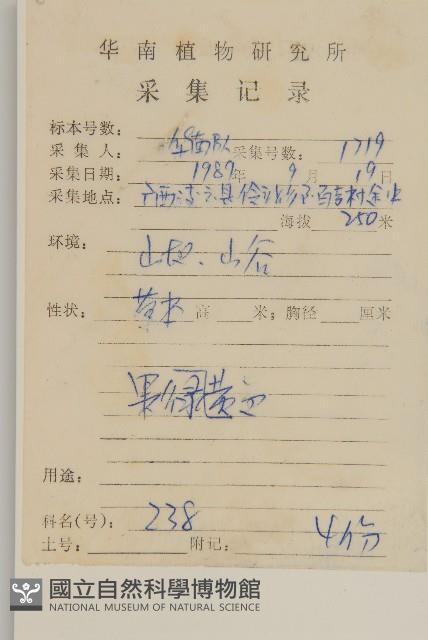 华南植物研究所
采集记录
标本号数：
采集人：华南队 采集号数：1719
采集日期：1989年9月19日
采集地点：广西 县
海拔250米
环境：山坡、山谷
性状：草本 高 米；胸径 厘米
果绿黄色
用途：
科名(号)：238
土号： 附记：4份
國立自然科學博物館
NATIONAL MUSEUM OF NATURAL SCIENCE